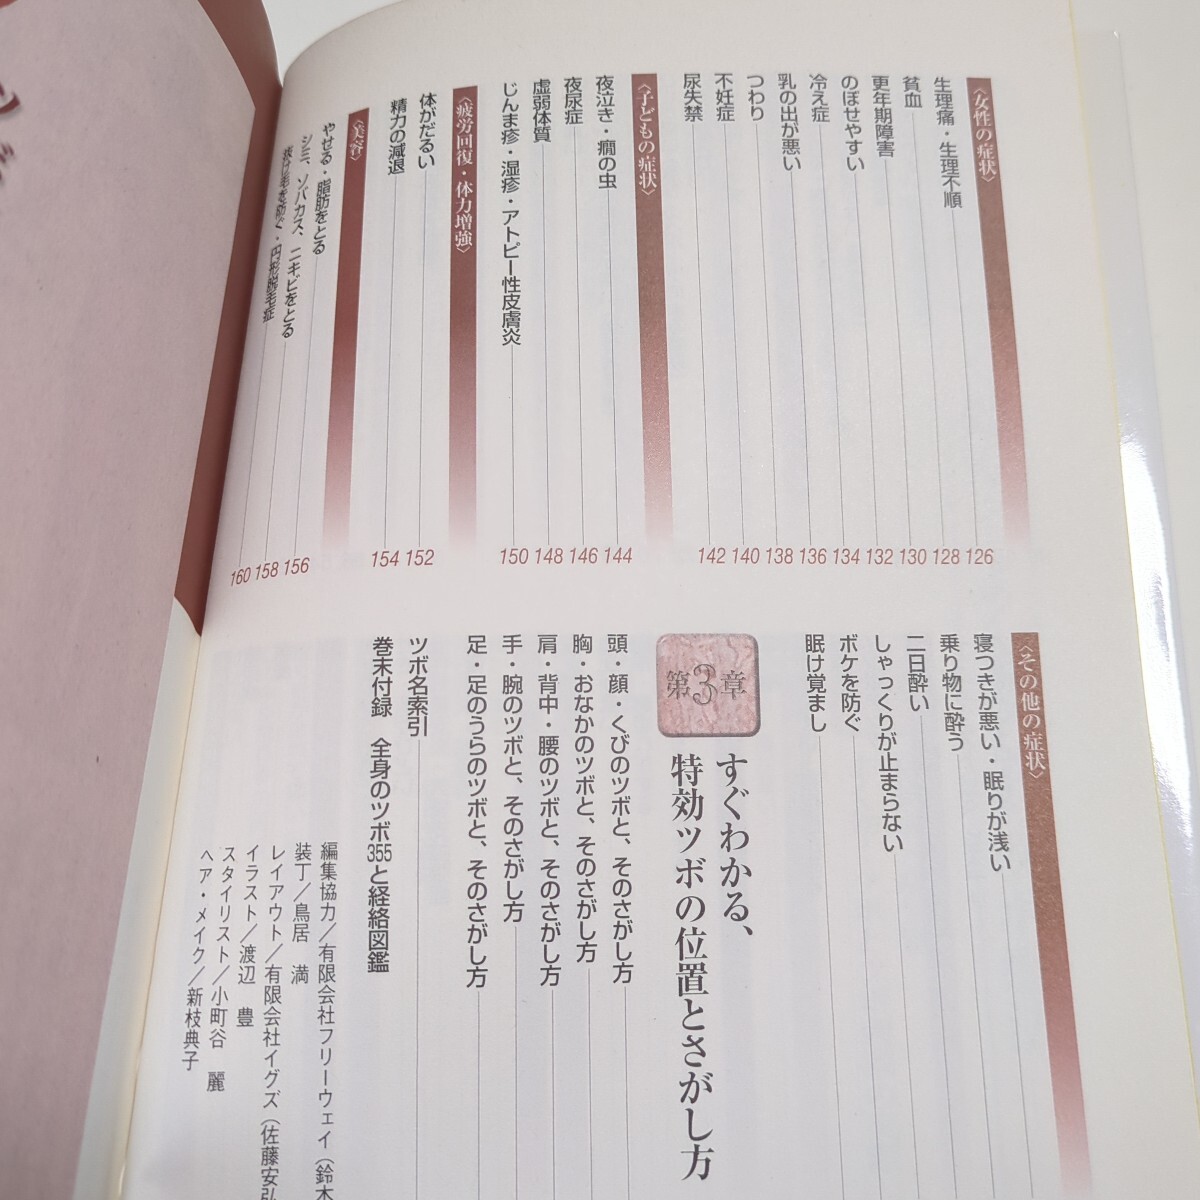 〈女性の症状〉
生理痛・生理不順 126
貧血 128
更年期障害 130
のぼせやすい 132
冷え症 134
乳の出が悪い 136
つわり 138
不妊症 140
尿失禁 142
〈子どもの症状〉
夜泣き・癇の虫 144
夜尿症 146
虚弱体質 148
じんま疹・湿疹・アトピー性皮膚炎 150
〈疲労回復・体力増強〉
体がだるい 152
精力の減退 154
〈美容〉
やせる・脂肪をとる 156
シミ、ソバカス、ニキビをとる 158
抜け毛を防ぐ・円形脱毛症 160
〈その他の症状〉
寝つきが悪い・眠りが浅い
乗り物に酔う
二日酔い
しゃっくりが止まらない
ボケを防ぐ
眠け覚まし
第3章
すぐわかる、
特効ツボの位置とさがし方
頭・顔・くびのツボと、そのさがし方
胸・おなかのツボと、そのさがし方
肩・背中・腰のツボと、そのさがし方
手・腕のツボと、そのさがし方
足・足のうらのツボと、そのさがし方
ツボ名索引
巻末付録 全身のツボ355と経絡図鑑
編集協力／有限会社フリーウェイ（鈴木
装丁／鳥居 満
レイアウト／有限会社イグズ（佐藤安弘
イラスト／渡辺 豊
スタイリスト／小町谷 麗
ヘア・メイク／新枝典子